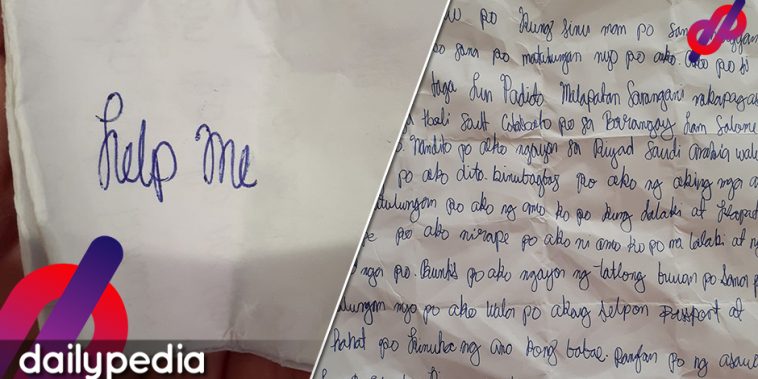 help me
po kung sinu man po
po sana po matulungan nyo po ako. Ako po si
taga Lun Padido Malapatan Sarangani nakapagas
tboli Sout Cotabato po sa Barangay Lam Salome
Nandito po ako ngayon sa Riyad Saudi Arabia wala
po ako dito. binubugbog po ako ng aking mga
po ako ng amo ko po kung lalaki at
po ako nirape po ako ni amo ko po na lalaki at
nga po. Buntis po ako ngayon ng tatlong buwan po sana
nyo po ako wala po akong selpon passport at
lahat po kinuha ng amo kong babae. po ng
dailypedia